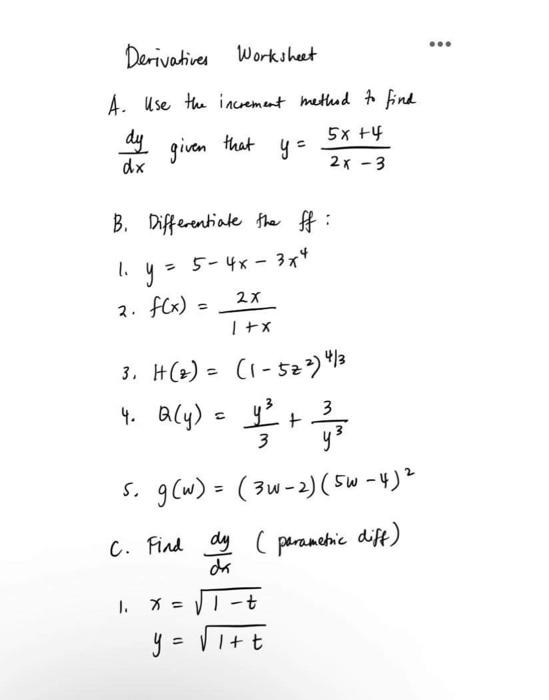 Derivatives Worksheet
A. Use the increment method to find
dy/dx given that y = (5x + 4)/(2x - 3)
B. Differentiate the ff :
1. y = 5 - 4x - 3x⁴
2. f(x) = 2x/(1 + x)
3. H(z) = (1 - 5z²)^(4/3)
4. Q(y) = y³/3 + 3/y³
5. g(w) = (3w - 2)(5w - 4)²
C. Find dy/dx (parametric diff)
1. x = √(1 - t)
y = √(1 + t)